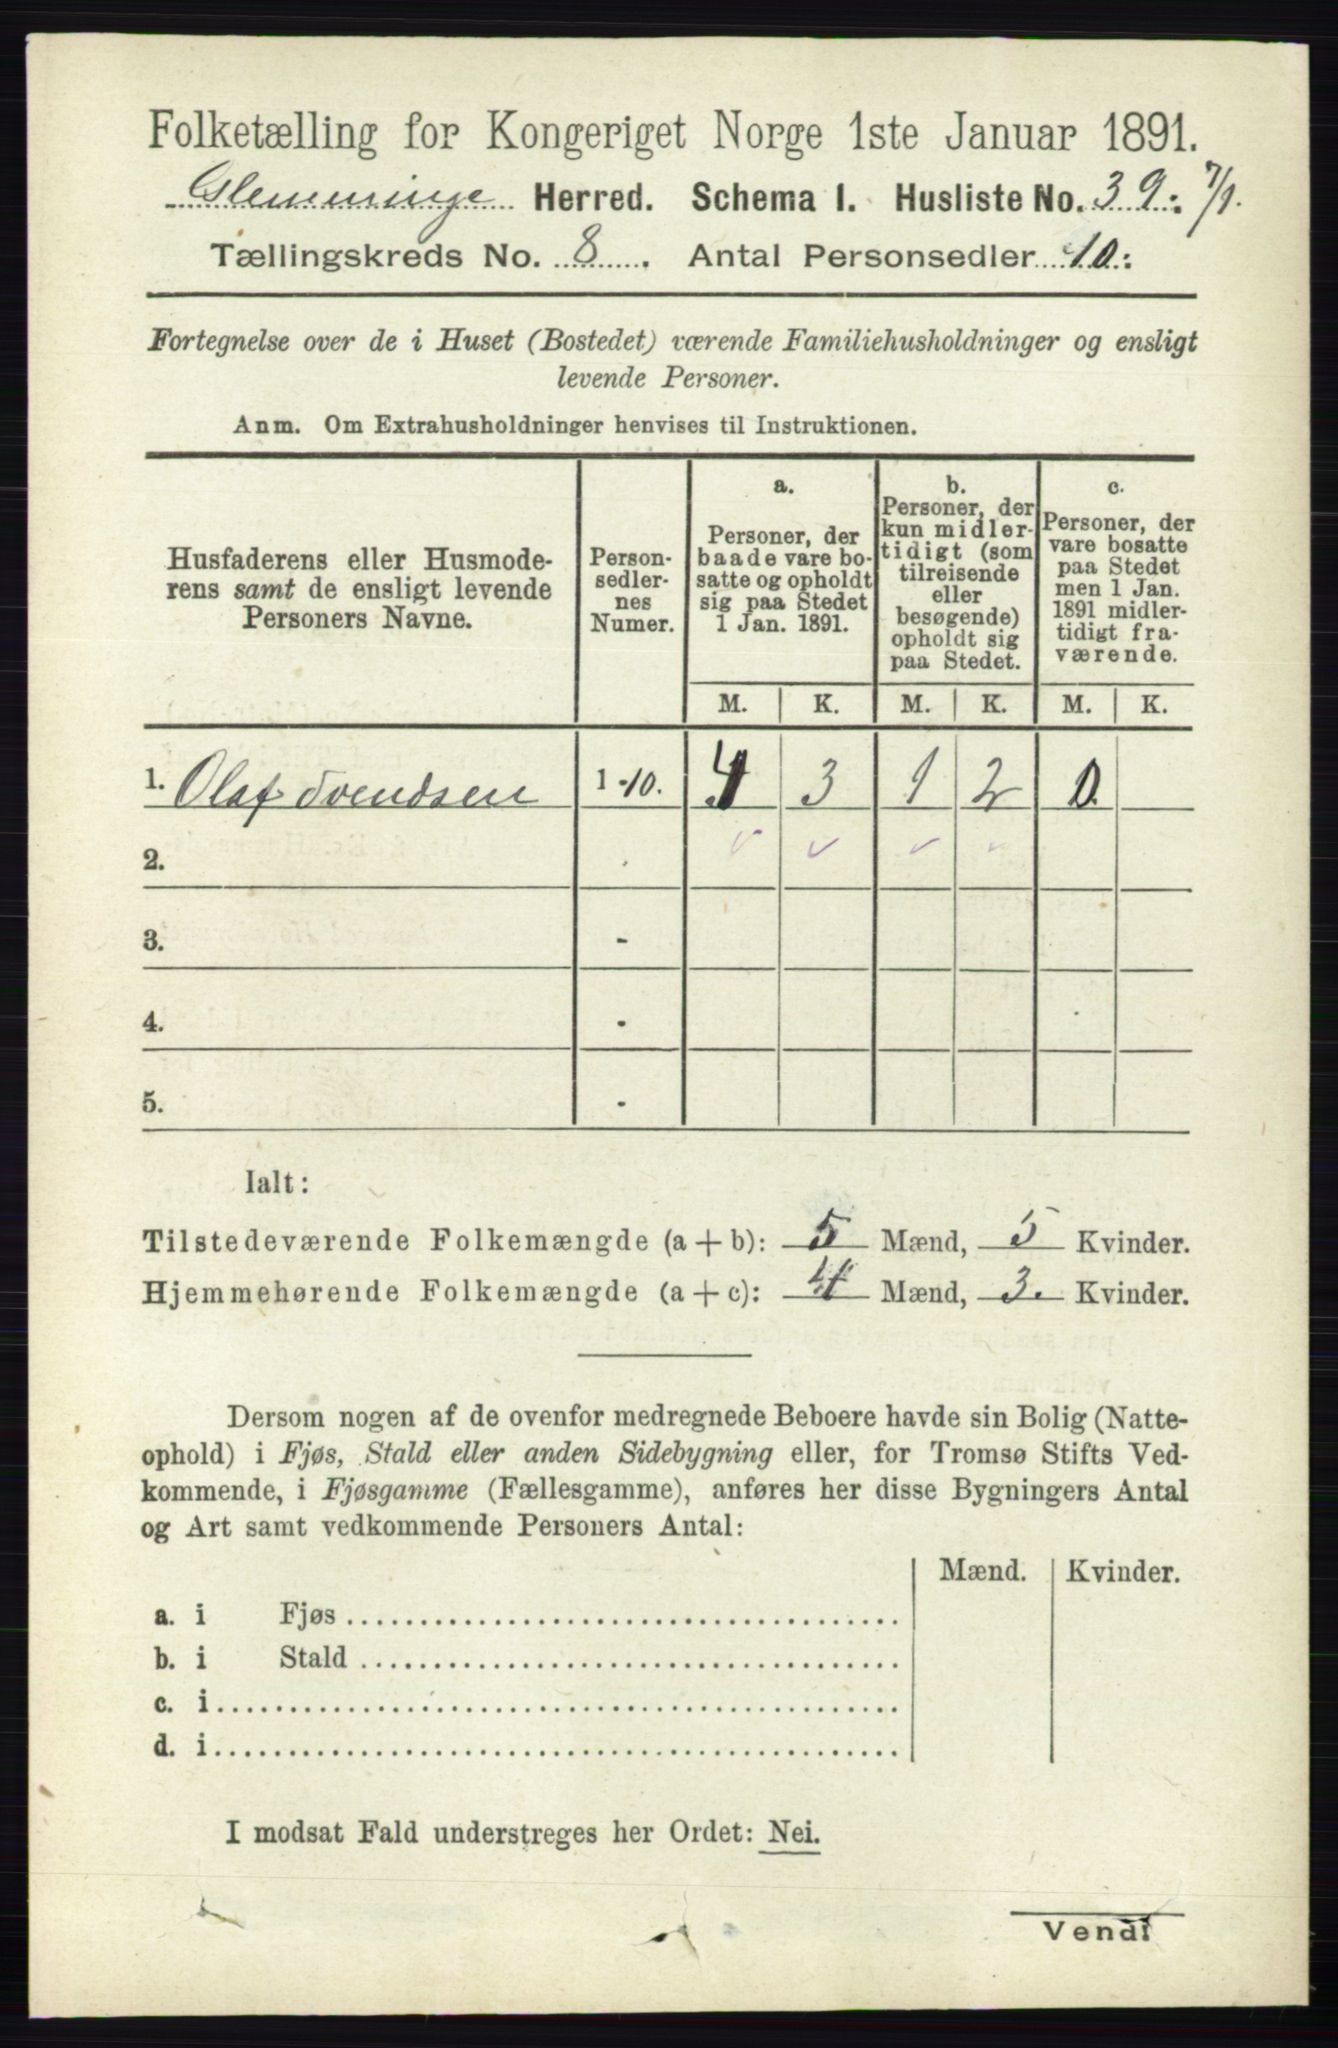 Folketælling for Kongeriget Norge 1ste Januar 1891.
Glemminge Herred. Schema I. Husliste No. 39. 7/1.
Tællingskreds No. 8. Antal Personsedler 10.
Fortegnelse over de i Huset (Bostedet) værende Familiehusholdninger og ensligt
levende Personer.
Anm. Om Extrahusholdninger henvises til Instruktionen.
Husfaderens eller Husmode-
rens samt de ensligt levende
Personers Navne.
Person-
sedler-
nes
Numer.
a.
Personer, der
baade vare bo-
satte og opholdt
sig paa Stedet
1 Jan. 1891.
b.
Personer, der
kun midler-
tidigt (som
tilreisende
eller
besøgende)
opholdt sig
paa Stedet.
c.
Personer, der
vare bosatte
paa Stedet
men 1 Jan.
1891 midler-
tidigt fra-
værende.
M. K. M. K. M. K.
1. Olaf Svendsen 1-10. 4 3 1 2 0.
2.
3. -
4. -
5. -
Ialt:
Tilstedeværende Folkemængde (a + b): 5 Mænd, 5 Kvinder.
Hjemmehørende Folkemængde (a + c): 4 Mænd, 3. Kvinder.
Dersom nogen af de ovenfor medregnede Beboere havde sin Bolig (Natte-
ophold) i Fjøs, Stald eller anden Sidebygning eller, for Tromsø Stifts Ved-
kommende, i Fjøsgamme (Fællesgamme), anføres her disse Bygningers Antal
og Art samt vedkommende Personers Antal:
Mænd. Kvinder.
a. i Fjøs
b. i Stald
c. i
d. i
I modsat Fald understreges her Ordet: Nei.
Vend!